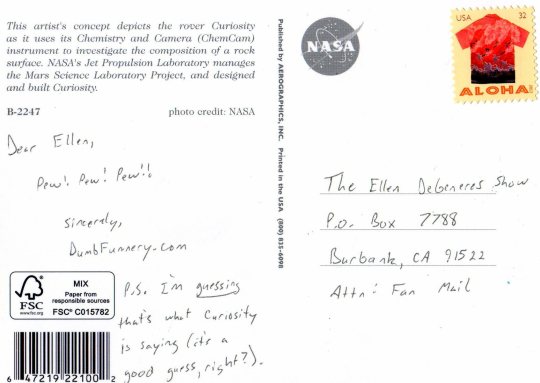 This artist's concept depicts the rover Curiosity
as it uses its Chemistry and Camera (ChemCam)
instrument to investigate the composition of a rock
surface. NASA's Jet Propulsion Laboratory manages
the Mars Science Laboratory Project, and designed
and built Curiosity.
B-2247 photo credit: NASA
Dear Ellen,
Pew! Pew! Pew!!
Sincerely,
DumbFunnery.com
P.S. I'm guessing
that's what Curiosity
is saying (it's a
good guess, right?).
FSC
www.fsc.org
MIX
Paper from
responsible sources
FSC® C015782
6 47219 22100 2
Published by AEROGRAPHICS, INC. Printed in the USA (800) 835-6098
NASA
USA 32
ALOHA
The Ellen DeGeneres Show
P.O. Box 7788
Burbank, CA 91522
Attn: Fan Mail